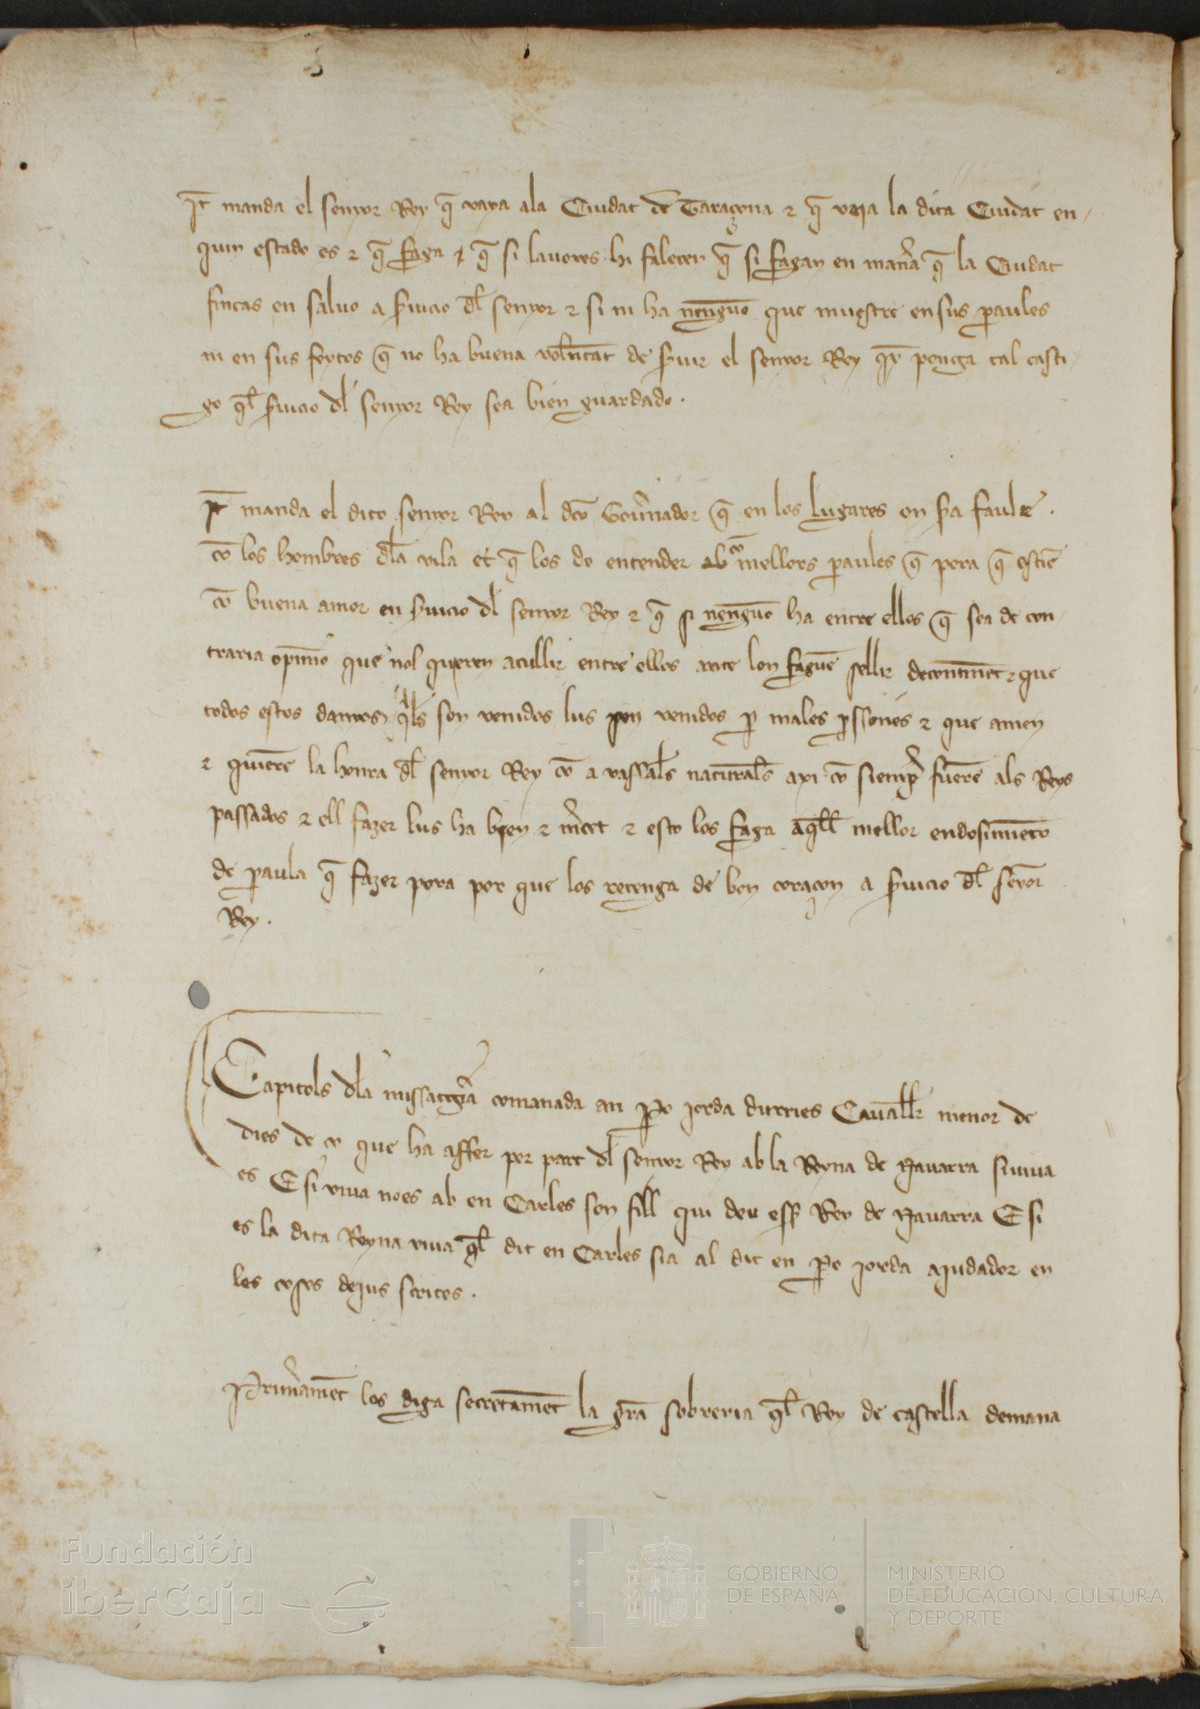 It manda el senyor Rey q̄ vaya ala Ciudat de Taraçona ⁊ q̄ veia la dita Ciudat en
quin estado es ⁊ q̄ faga ⁊ q̄ si lauores hi falecen q̄ si fagan en man̄a q̄ la Ciudat
fincas en saluo a s̄uicio dl̄ senyor ⁊ si ni ha nenguno que muestre en sus paules
ni en sus feytos q̄ no ha buena volūtat de s̄uir el senyor Rey q̄ y penga tal casti
go ql̄ s̄uicio dl̄ senyor Rey sea bien guardado .
It manda el dito senyor Rey al dco Gou̅nador q̄ en los lugares on s̄a faule .
cō los hombres dla vila et q̄ los do entender ab mellors paules q̄ pora q̄ estiē
cō buena amor en s̄uicio dl̄ senyor Rey ⁊ q̄ si nenguno ha entre ellos q̄ sea de con
traria opinio que nol quieren acullir entre ellos ante lon faguē sellir decontinēt ⁊ que
todos estos danyos q̄ls son venidos lus son venidos p̄ males p̄ssones ⁊ que amen
⁊ quierē la honra dl̄ senyor Rey cō a vassalls naturals axi cō siemp̄ fuerē als Reys
passados ⁊ ell fazer lus ha bien ⁊ m̄cet ⁊ esto los faga aq̄ll mellor endosimiēto
de paula q̄ fazer pora por que los retenga de bon coraçon a s̄uicio dl̄ senyor
Rey .
Capitols dla missatgia comanada an P̄o Jorda durries Cauall̄r menor de
dies de ço que ha affer por part dl̄ senyor Rey ab la Reyna de Nauarra si viua
es E si viua no es ab en Carles son fill qui deu ess̄ Rey de Nauarra E si
es la dita Reyna viua ql̄ dit en Carles sia al dit en P̄o Jorda ajudador en
les coses dejus scrites .
Prim̄ament los diga secretament la grā sobreria ql̄ Rey de Castella demana
Fundación
iberCaja
GOBIERNO
DE ESPAÑA
MINISTERIO
DE EDUCACIÓN, CULTURA
Y DEPORTE